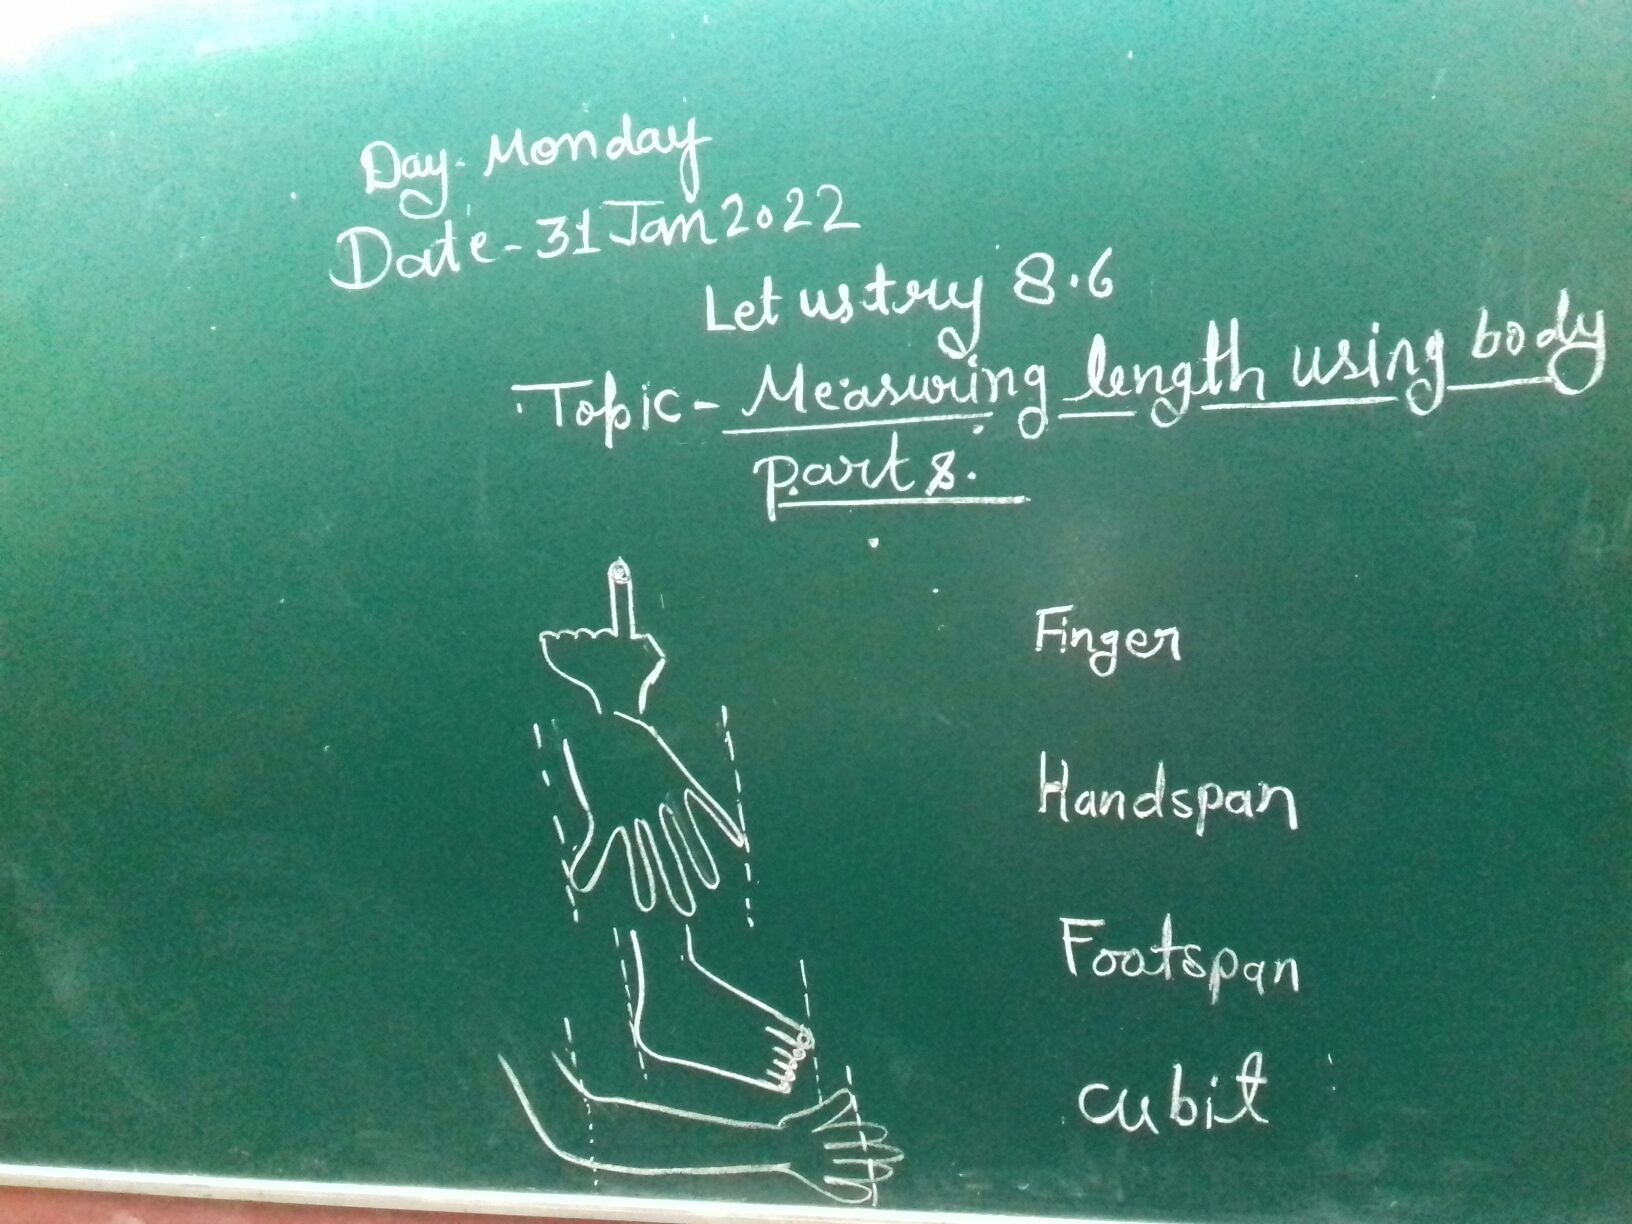 Day. Monday
Date - 31 Jan 2022
Let us try 8.6
Topic - Measuring length using body
parts.
Finger
Handspan
Footspan
cubit